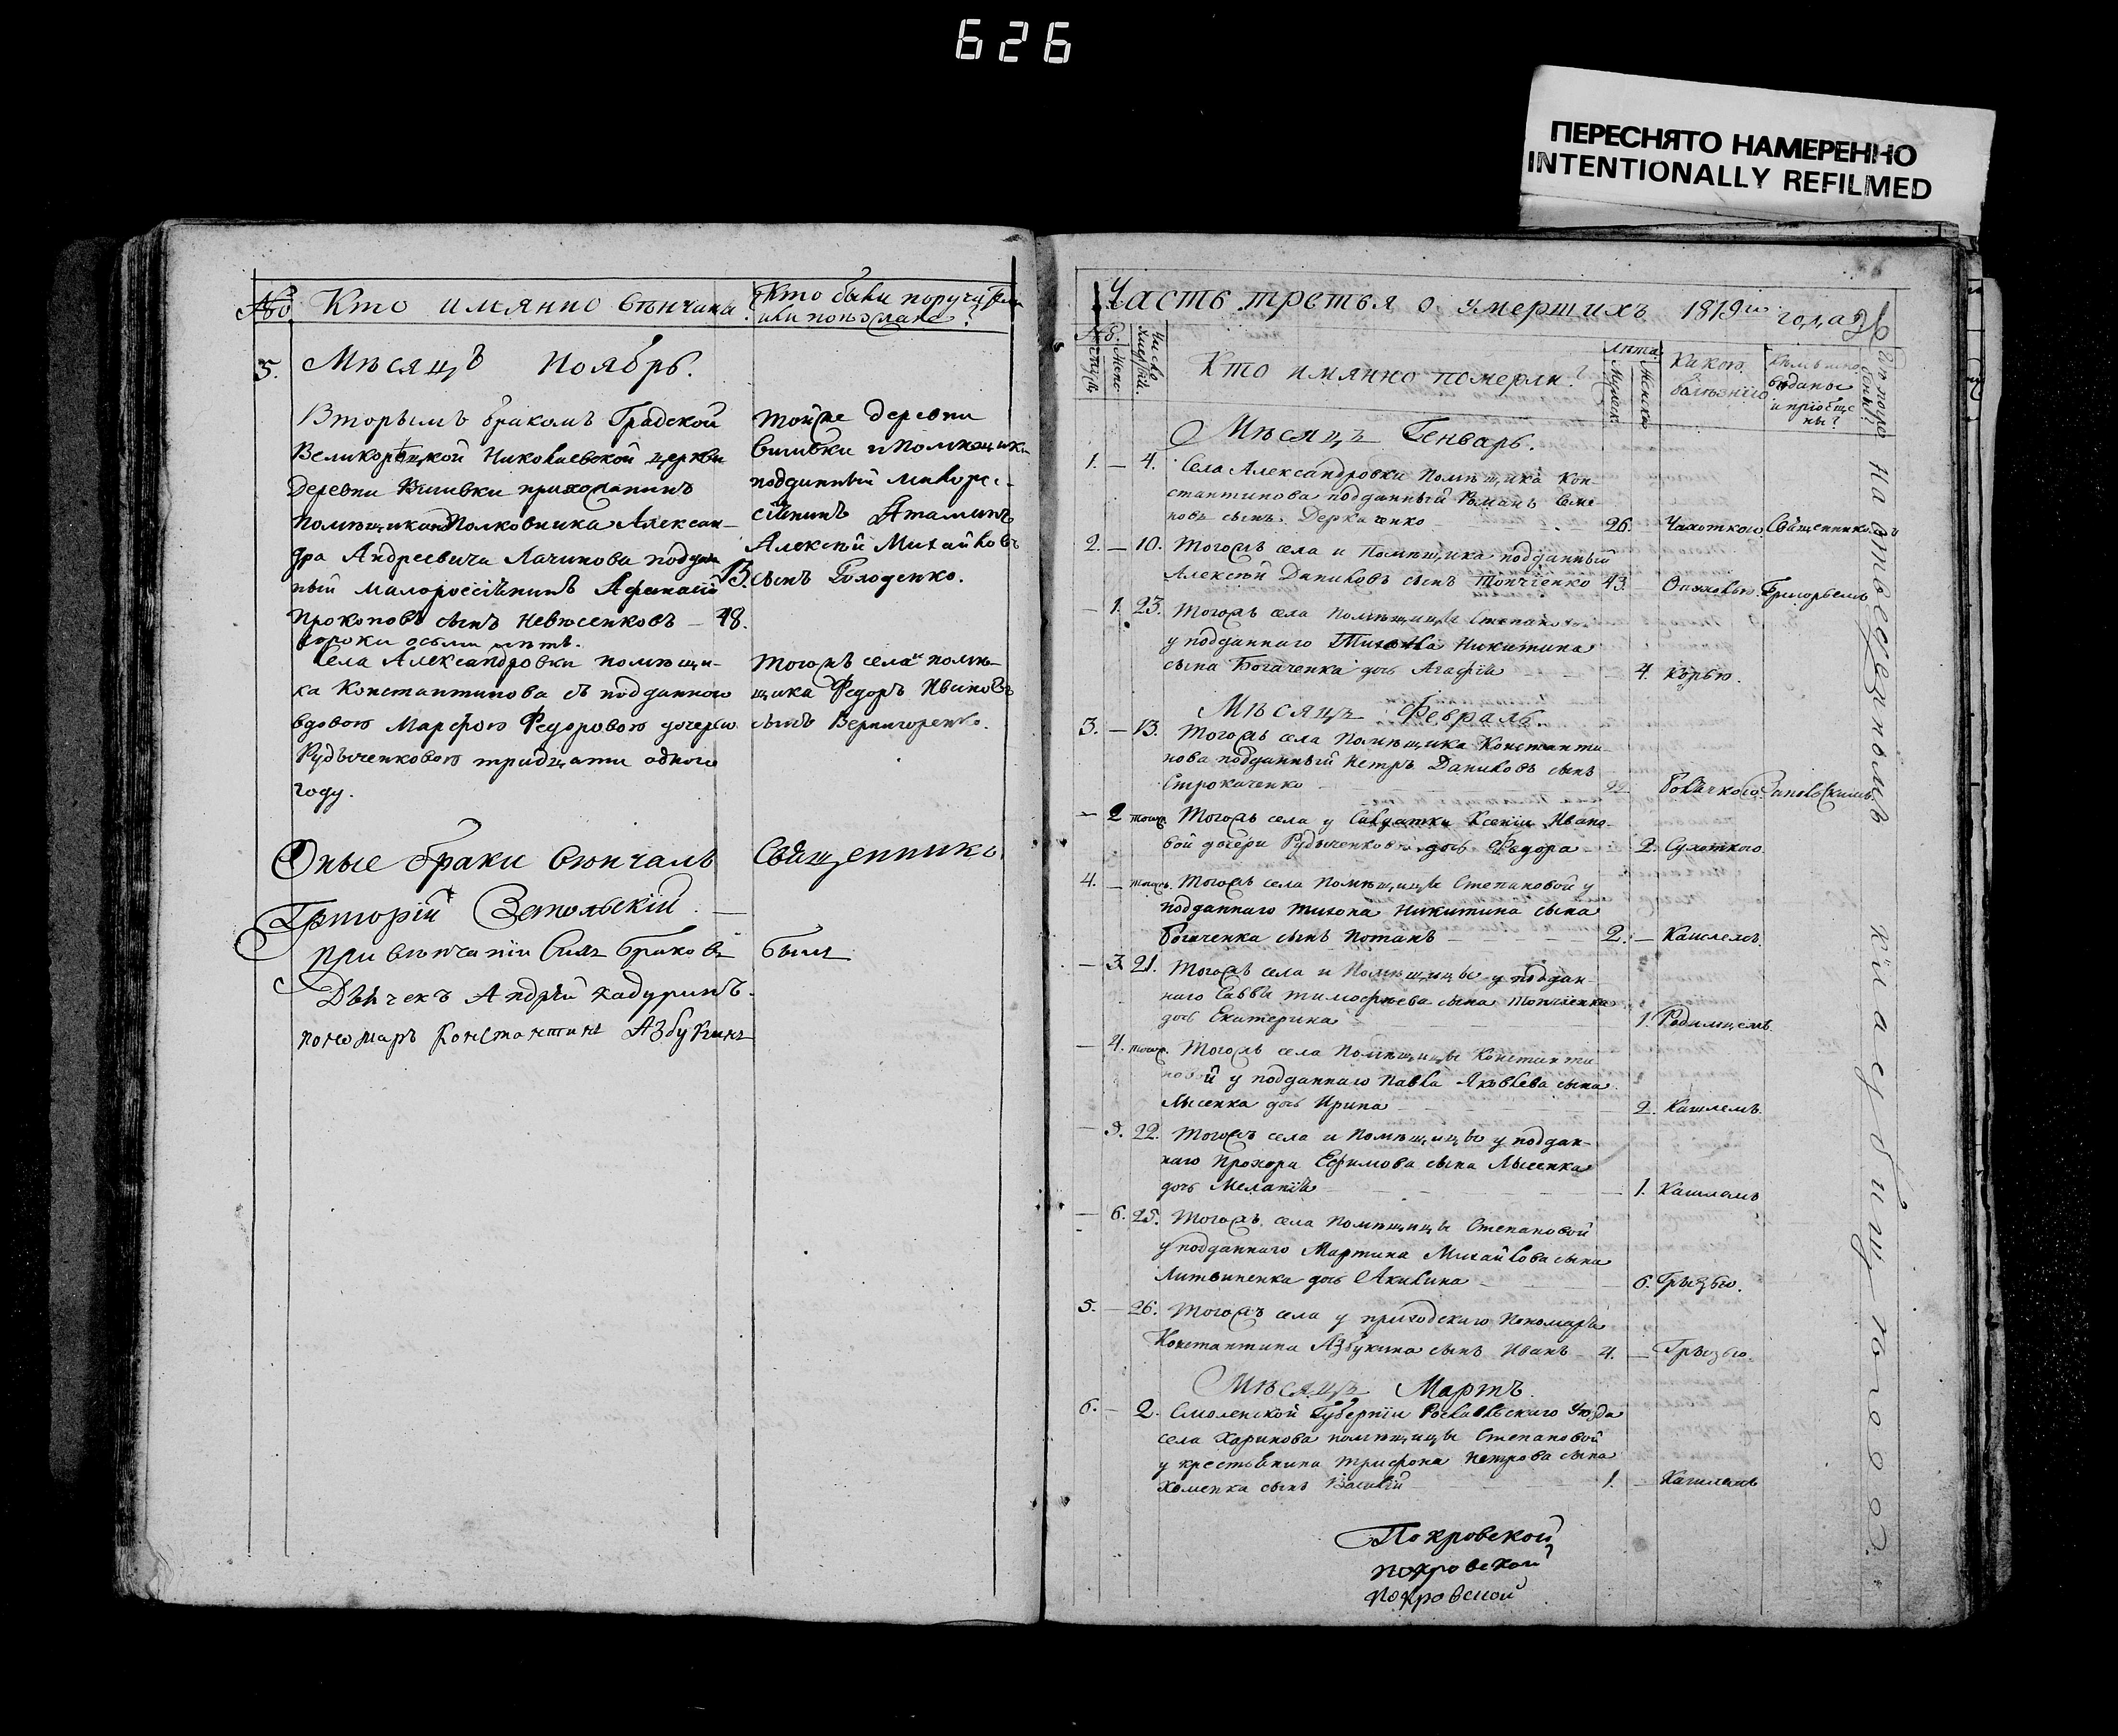 626
ПЕРЕСНЯТО НАМЕРЕННО
INTENTIONALLY REFILMED
№ Кто имянно венчаны.
Кто были поручители
или поѣзжане?
5. Мѣсяцъ Ноябрь.
Вторымъ бракомъ Градской
Великорѣцкой Николаевской церкви
деревни прихожанинъ
помѣщика Полковника Алексан-
дра Андреевича Лачинова поддан
ный малороссіянинъ Афанасій 13.
Прокоповъ сынъ Невѣсенковъ 48.
сорока осьми лѣтъ.
Села Александровки помѣщи-
ка Константинова съ подданною
вдовою Марфою Федоровою дочерью
Рудыченковою тридцати одного
году.
тойже деревни
и помѣщика
подданный малорос-
сіянинъ
Алексѣй Михайловъ
сынъ Голоденко.
тогожъ села и помѣ-
щика Федоръ Ивановъ
сынъ Вернигоренко.
Оные браки вѣнчалъ Священникъ
Григорій
при вѣнчаніи сихъ браковъ были
Дьячекъ Андрѣй Кадуринъ.
пономарь Константинъ Азбукинъ
Часть третья о умершихъ 1819го года
Число
Кто имянно померли?
Лѣта.
Мужеск.
Женски
Какою
болѣзнію
и приобще
ны?
Гдѣ погре
бены?
Мѣсяцъ Генварь.
1. — 4. Села Александровки Помѣщика Кон-
стантинова подданный Романъ Семе
новъ сынъ Деркаченко 26. Чахоткою Священникомъ
2. — 10. Тогожъ села и Помѣщика подданный
Алексѣй Даниловъ сынъ Топчіенко 43. Григорьемъ
— 1. 23. Тогожъ села Помѣщицы Степановой
у подданнаго Тихона Никитина
сына Богаченка дочь Агафія 4. корью.
Мѣсяцъ Февраль.
3. — 13. Тогожъ села Помѣщика Константи
нова подданный Петръ Даниловъ сынъ
Строкаченко 22
— 2 тогож. Тогожъ села у Солдатки Ксеніи Ивано-
вой дочери Рудыченковой дочь Федора 2. Сухоткою
4. — тогож. Тогожъ села Помѣщицы Степановой у
подданнаго тихона Никитина сына
Богаченка сынъ Потапъ 2. — Кашлемъ.
— 3. 21. Тогожъ села и Помѣщицы у поддан-
наго Саввы тимофѣева сына Топчіенка
дочь Екатерина 1. Родимцемъ
— 4. тогож. Тогожъ села Помѣщицы Константи
новой у подданнаго Павла Яковлева сына
Лысенка дочь Ирина 2. Кашлемъ.
— 5. 22. Тогожъ села и Помѣщицы у поддан-
наго Прохора Ефимова сына Лысенка
дочь Меланія 1. Кашлемъ
— 6. 25. Тогожъ села Помѣщицы Степановой
у подданнаго Мартина Михайлова сына
Литвиненка дочь Акилина 6. Грызью.
5. — 26. Тогожъ села у приходскаго Пономаря
Константина Азбукина сынъ Иванъ 4. — Грызью.
Мѣсяцъ Мартъ.
6. — 2. Смоленской Губерніи Рославльскаго Уѣзда
села Харинова помѣщицы Степановой
у крестьянина Трифона Петрова сына
Хоменка сынъ Василій 1. Кашлемъ
На отведенномъ кладбищѣ
Покровской
покровской
покровской